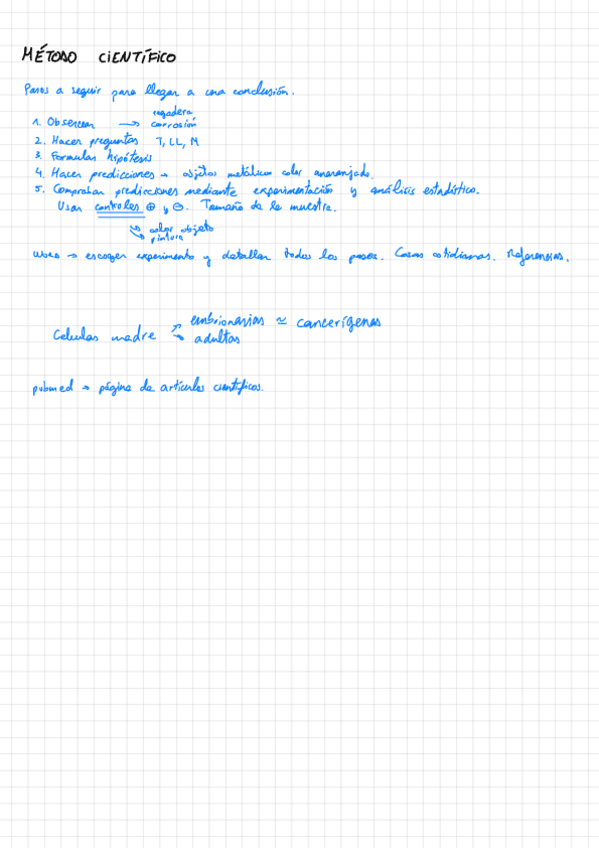 MÉTODO CIENTÍFICO
Pasos a seguir para llegar a una conclusión.
1. Observar → regadera corrosión
2. Hacer preguntas T, LL, M
3. Formular hipótesis
4. Hacer predicciones → objetos metálicos color anaranjado.
5. Comprobar predicciones mediante experimentación y análisis estadístico.
Usar controles ⊕ y ⊖. Tamaño de la muestra.
↪ color objeto
↪ pintura
→ escoger experimento y detallar todos los pasos. Cosas cotidianas. Referencias.
Células madre ↗ embrionarias ≃ cancerígenas
↘ adultas
pubmed → página de artículos científicos.